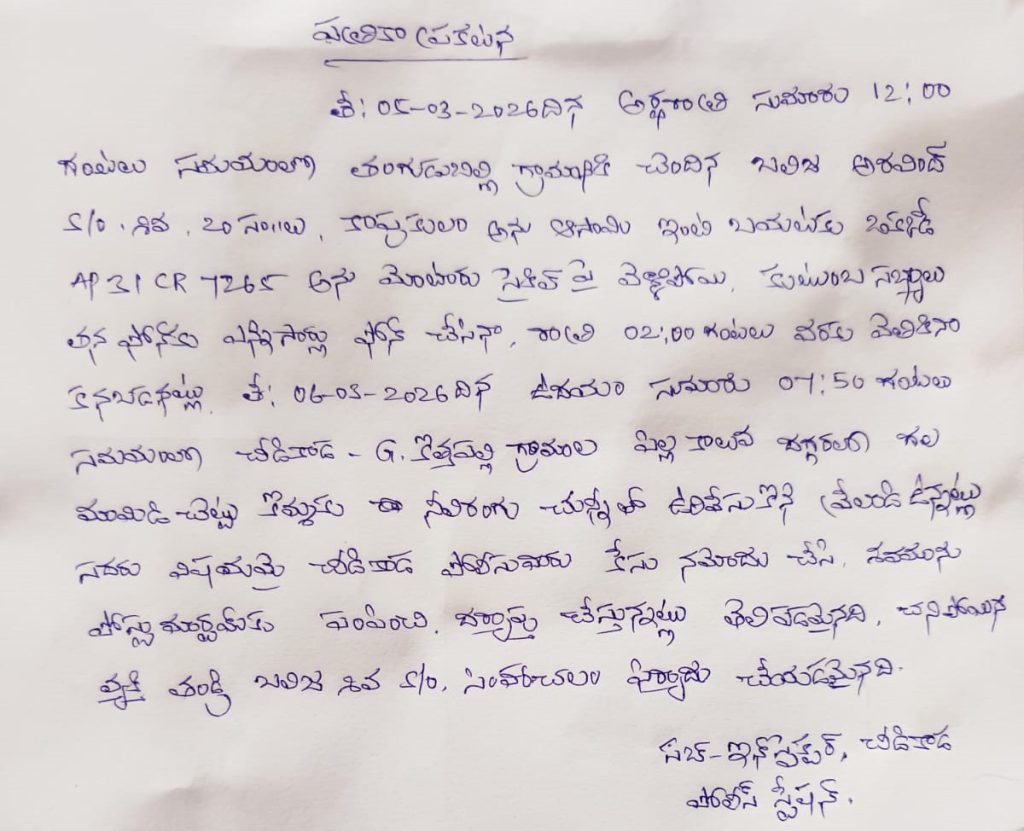 పత్రికా ప్రకటన
తే: 05-03-2026దిన అర్థరాత్రి సుమారు 12:00
గంటలు సమయంలో తంగుడుబిల్లి గ్రామానికి చెందిన బలిజ అరవింద్
S/o. శివ, 20 సం॥లు, కాపుకులం అను ఆసామి ఇంటి బయటకు
AP 31 CR 7265 అను మోటారు సైకిల్ పై వెళ్లిపోయి, కుటుంబ సభ్యులు
తన ఫోన్‌కు ఎన్నిసార్లు ఫోన్ చేసినా, రాత్రి 02:00 గంటలు వరకు వెతికినా
కనబడనట్లు, తే: 06-03-2026దిన ఉదయం సుమారు 07:50 గంటలు
సమయంలో చీడికాడ - G. కొత్తపల్లి గ్రామాల పిల్ల కాలువ దగ్గరలో గల
మామిడి చెట్టు కొమ్మకు నీలిరంగు చున్నీతో ఉరివేసుకొని వ్రేలాడి ఉన్నట్లు
సదరు విషయమై చీడికాడ పోలీసువారు కేసు నమోదు చేసి, శవమును
పోస్టుమార్టమ్‌కు పంపించి, దర్యాప్తు చేస్తున్నట్లు తెలిపడమైనది, చనిపోయిన
వ్యక్తి తండ్రి బలిజ శివ S/o. సింహాచలం ఫిర్యాదు చేయడమైనది.
సబ్-ఇన్‌స్పెక్టర్, చీడికాడ
పోలీస్ స్టేషన్.